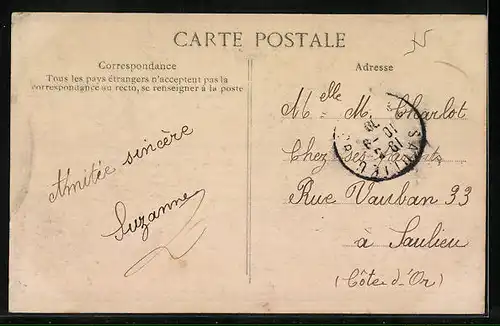 CARTE POSTALE
Correspondance
Tous les pays étrangers n'acceptent pas la
correspondance au recto, se renseigner à la poste
Adresse
Amitée sincère
Suzanne
Melle M. Charlot
Chez ses parents
Rue Vauban 33
à Saulieu
(Côte-d'Or)
SAULIEU